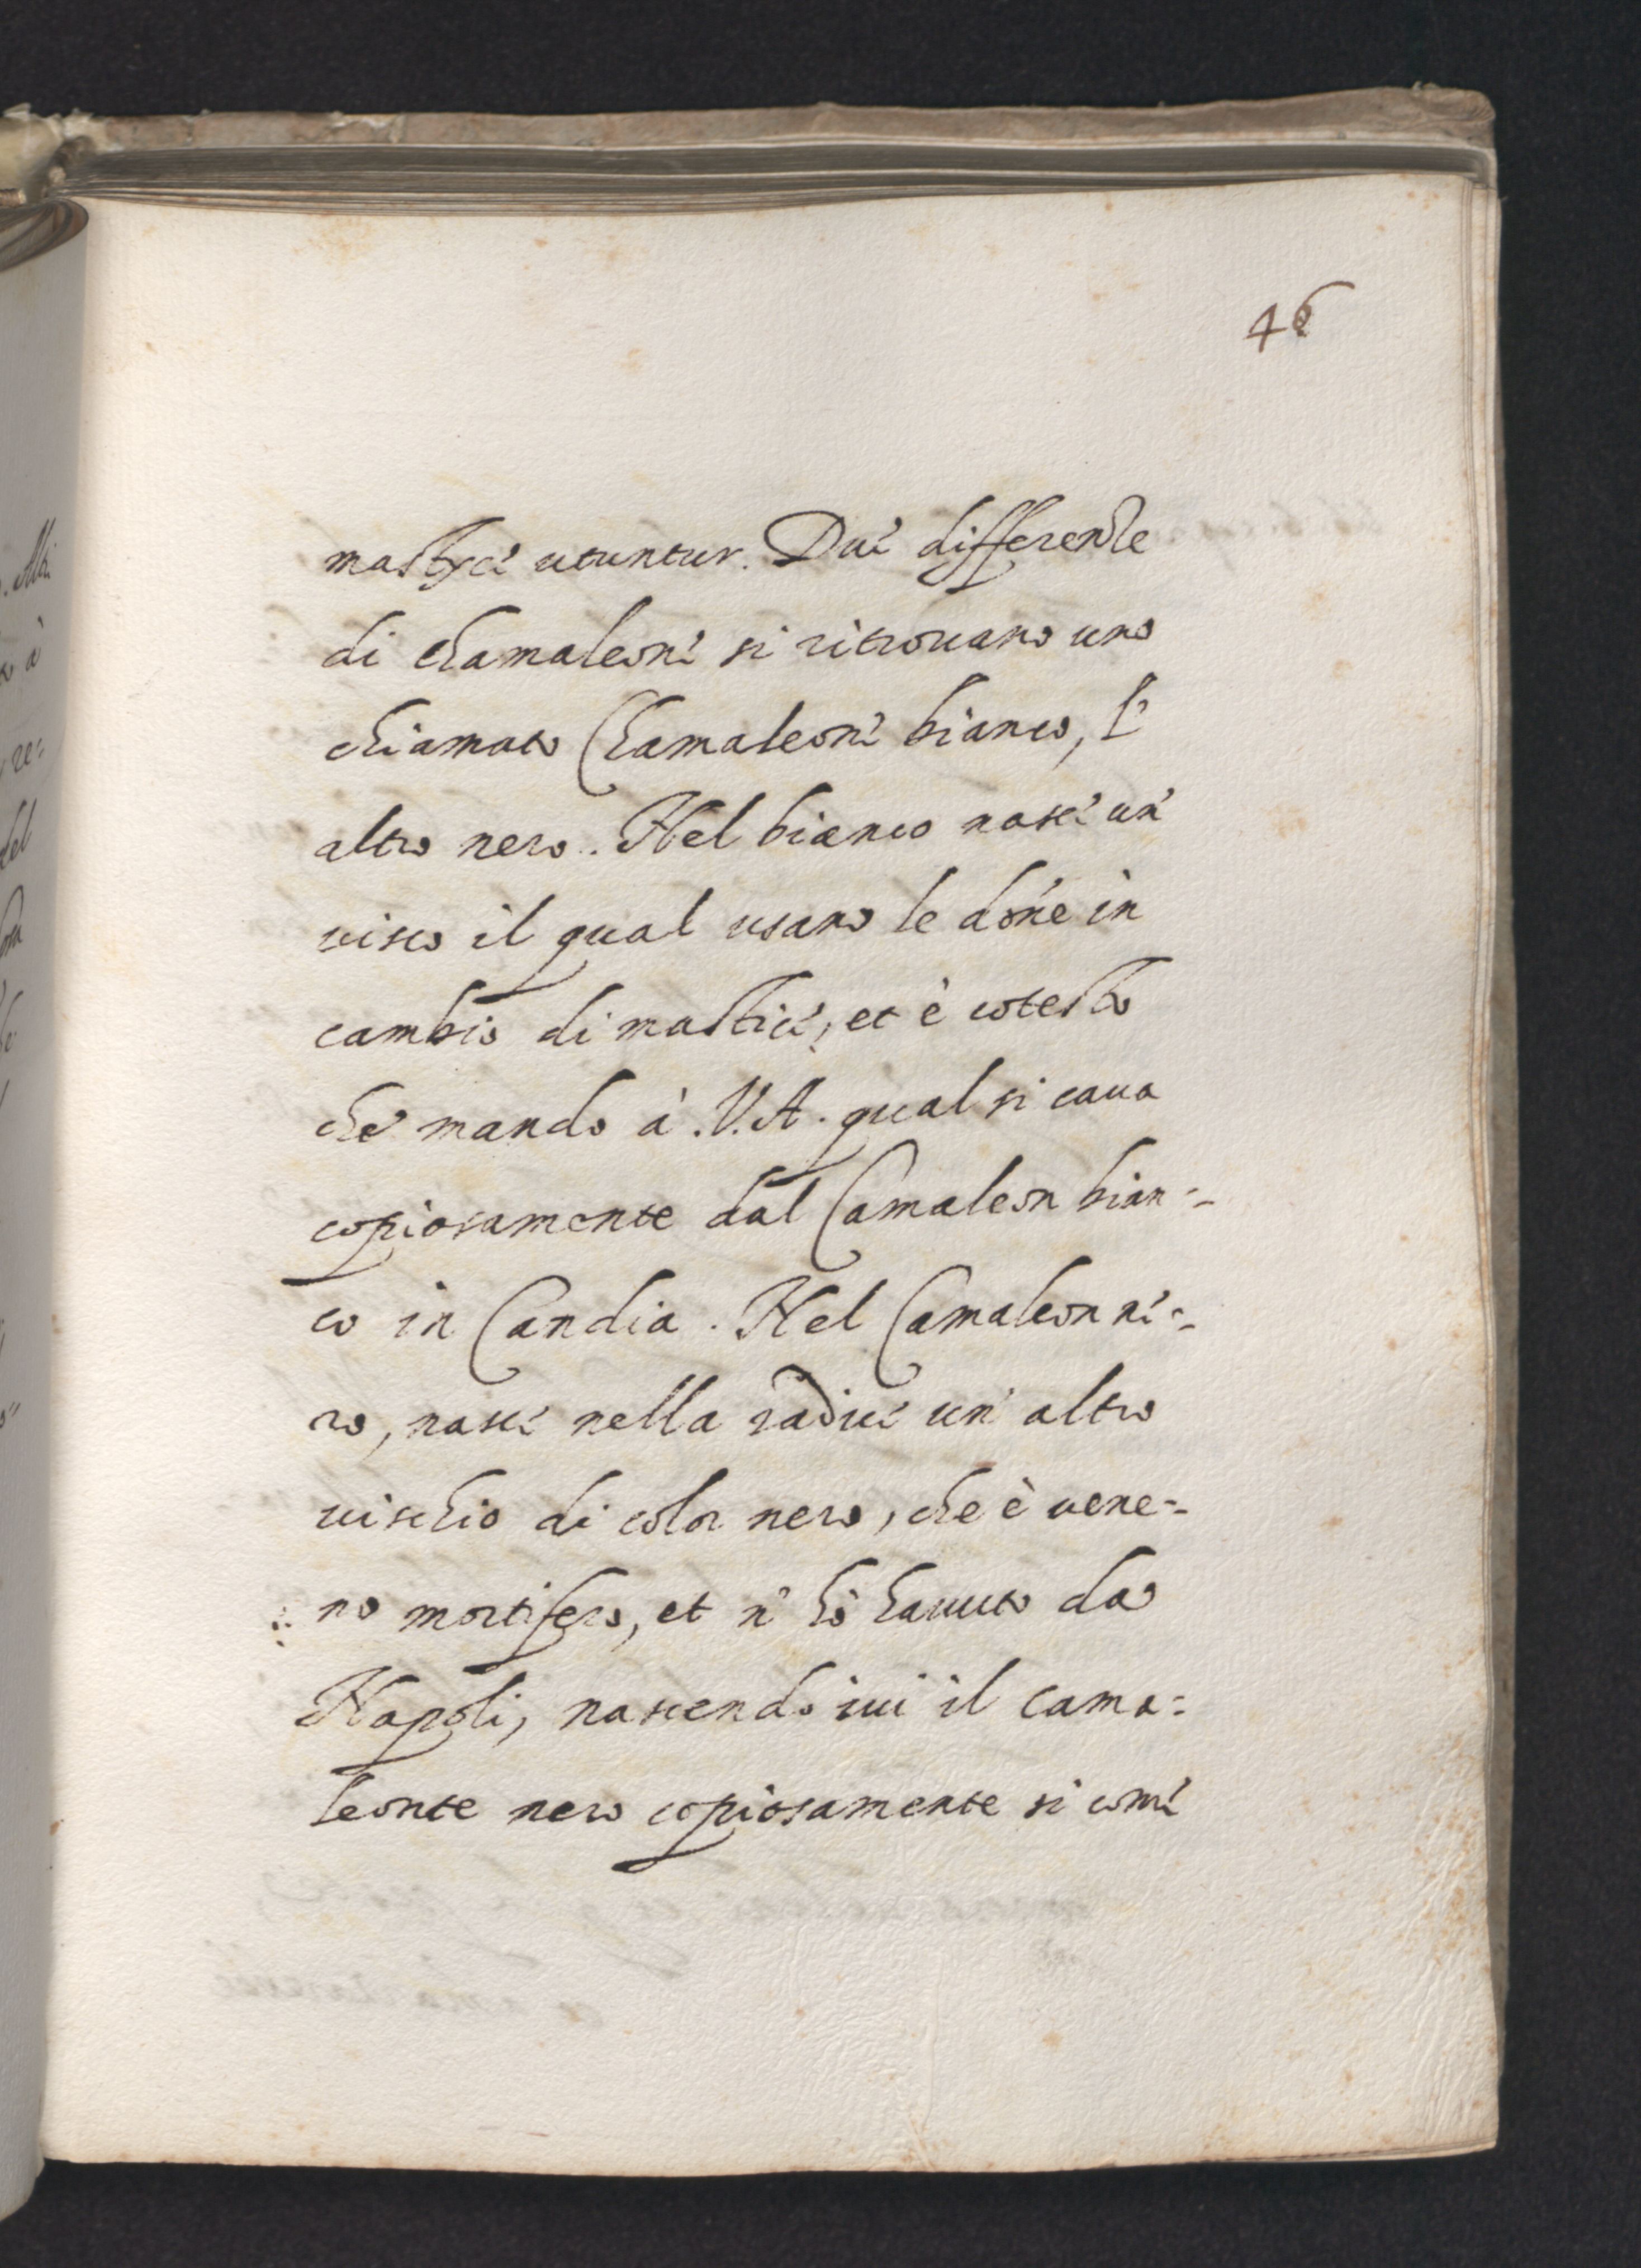 46
mastyce utuntur. Due differentie
di chamaleone si ritrovano uno
chiamato Chamaleone bianco, l'
altro nero. Nel bianco nasce un'
visco il qual usano le dóne in
cambio di mastice, et è cotesto
che mando à .V.A. qual si cava
copiosamente dal Camaleon bian=
co in Candia. Nel Camaleon ne=
ro, nasce nella radice un' altro
vischio di color nero, che è vene=
no mortifero, et n' hò havuto da
Napoli, nascendo ivi il cama=
leonte nero copiosamente si come